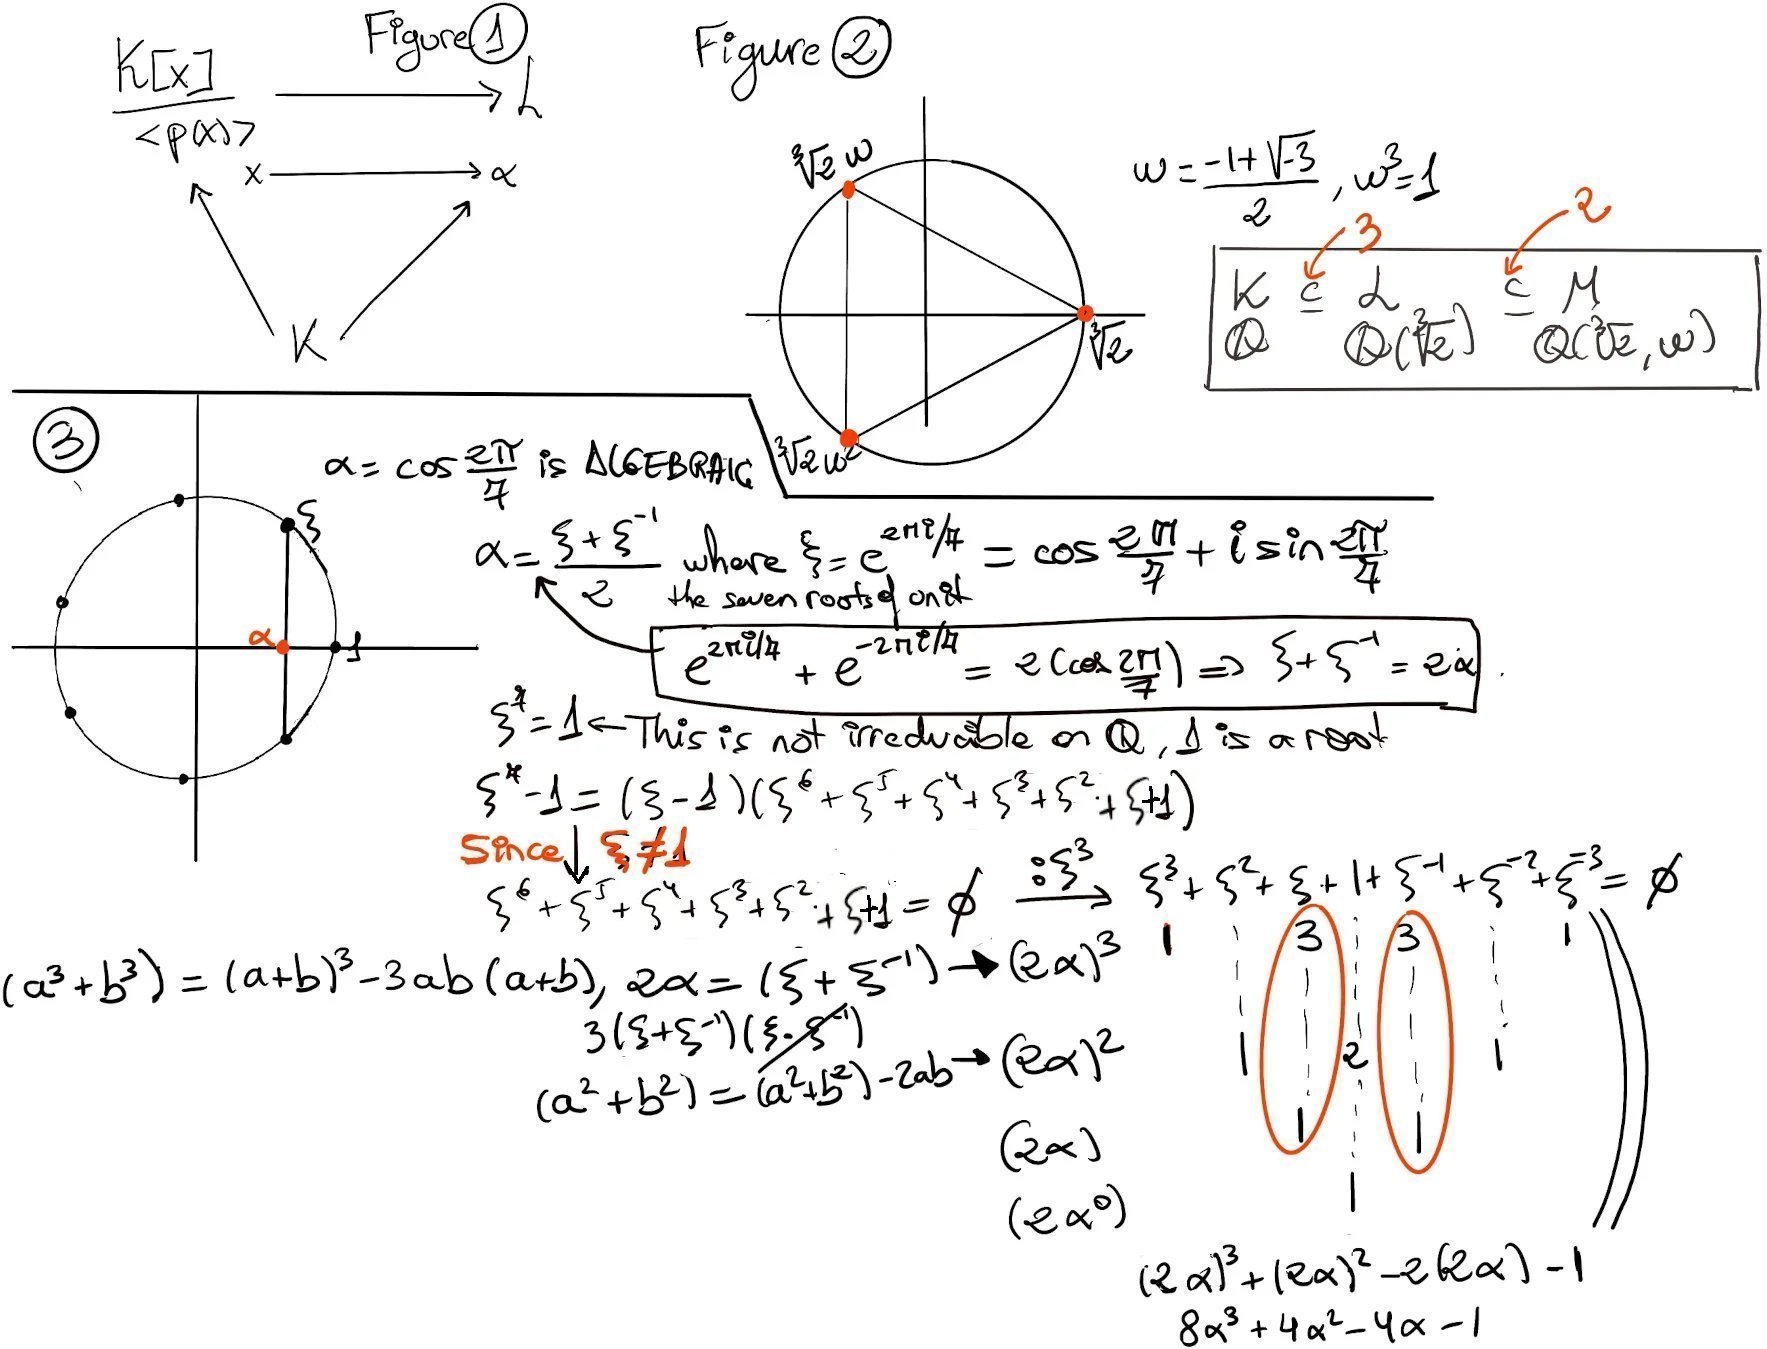 Figure ①
K[x]
<p(x)>
L
x
α
K
Figure ②
∛2 w
∛2
∛2 w²
w = (-1+√-3)/2 , w³=1
3
2
K ⊆ L ⊆ M
Q Q(∛2) Q(∛2, w)
③
α = cos 2π/7 is ALGEBRAIC
ξ
α
1
α = (ξ + ξ⁻¹)/2 where ξ = e^(2πi/7) = cos 2π/7 + i sin 2π/7
the seven roots of unit
e^(2πi/7) + e^(-2πi/7) = 2(cos 2π/7) ⇒ ξ + ξ⁻¹ = 2α
ξ⁷ = 1 ← This is not irreducible on Q, 1 is a root
ξ⁷ - 1 = (ξ - 1)(ξ⁶ + ξ⁵ + ξ⁴ + ξ³ + ξ² + ξ + 1)
Since ↓ ξ ≠ 1
ξ⁶ + ξ⁵ + ξ⁴ + ξ³ + ξ² + ξ + 1 = ∅
:ξ³
ξ³ + ξ² + ξ + 1 + ξ⁻¹ + ξ⁻² + ξ⁻³ = ∅
(a³ + b³) = (a+b)³ - 3ab(a+b), 2α = (ξ + ξ⁻¹) → (2α)³
1 3 3 1
3(ξ + ξ⁻¹)(ξ · ξ⁻¹)
(a² + b²) = (a² + b²) - 2ab → (2α)²
1 2 1
(2α)
1 1
(2α⁰)
1
(2α)³ + (2α)² - 2(2α) - 1
8α³ + 4α² - 4α - 1